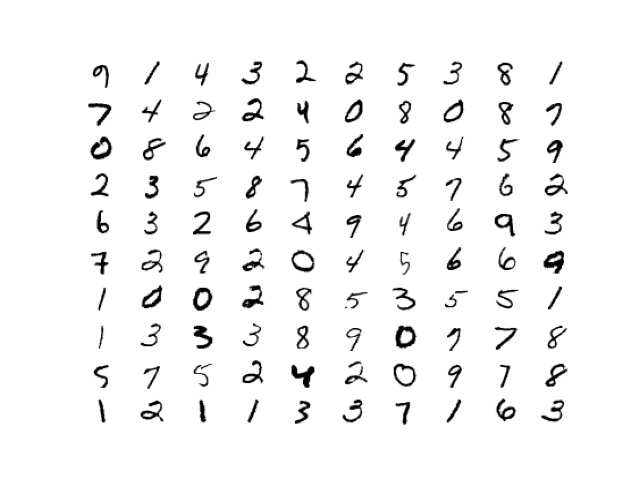 9 1 4 3 2 2 5 3 8 1
7 4 2 2 4 0 8 0 8 7
0 8 6 4 5 6 4 4 5 9
2 3 5 8 7 4 5 7 6 2
6 3 2 6 4 9 4 6 9 3
7 2 9 2 0 4 5 6 6 9
1 0 0 2 8 5 3 5 5 1
1 3 3 3 8 9 0 7 7 8
5 7 5 2 4 2 0 9 7 8
1 2 1 1 3 3 7 1 6 3